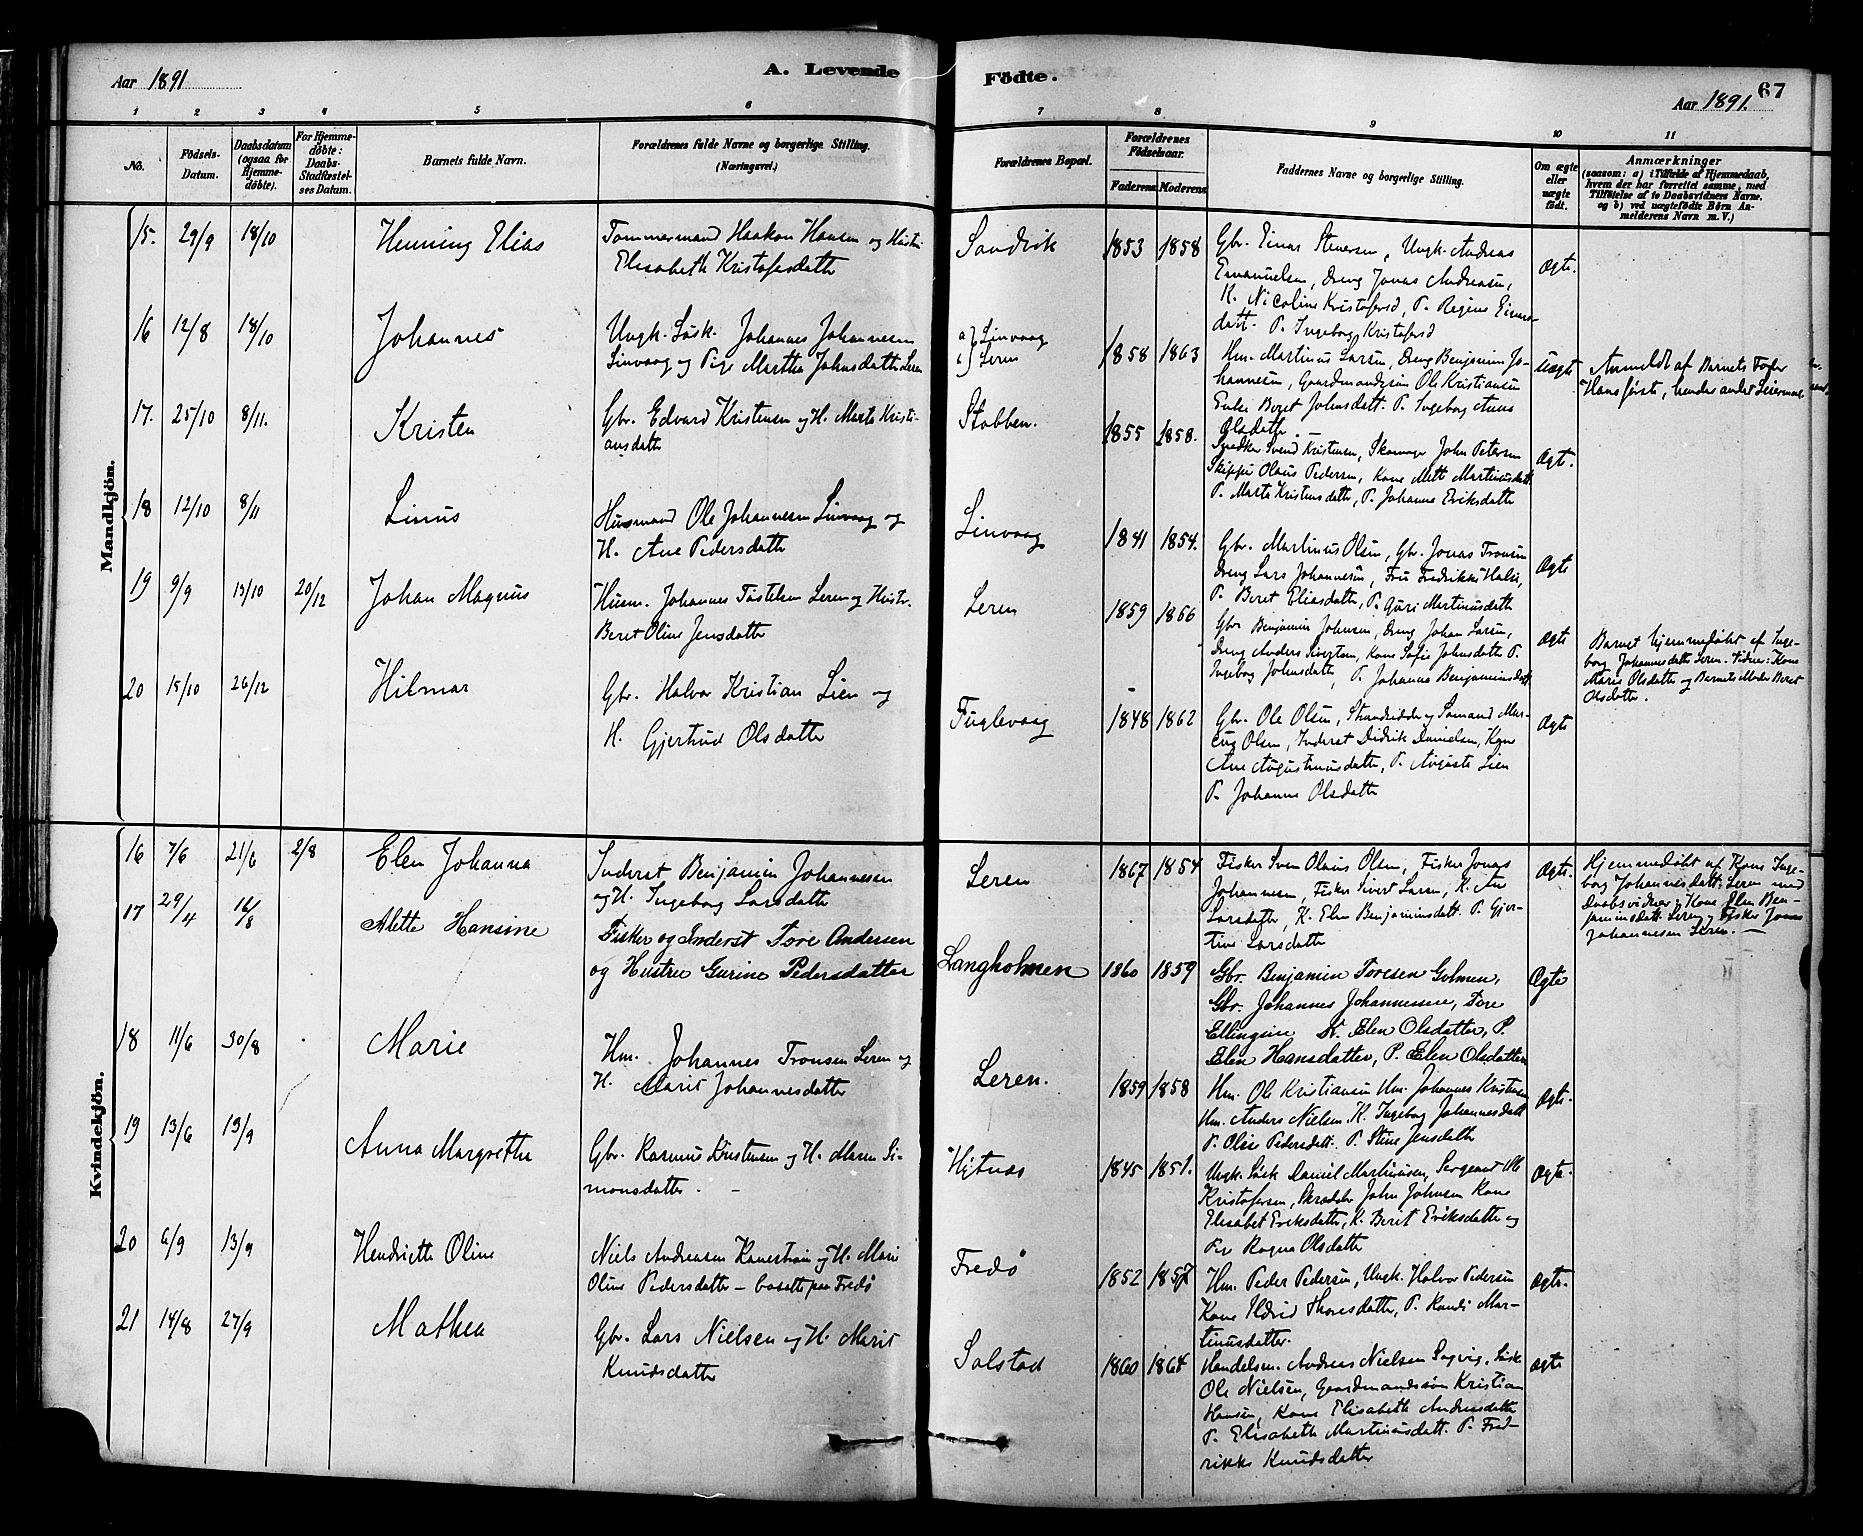 Aar 1891
A. Levende
Födte.
67
Aar 1891.
1 2 3 4 5 6 7 8 9 10 11
No.
Födsels-
Datum.
Daabsdatum
(ogsaa for
Hjemme-
döbte).
For Hjemme-
döbte:
Daabs-
Stadfæstel-
ses Datum.
Barnets fulde Navn.
Forældrenes fulde Navne og borgerlige Stilling.
(Næringsvei.)
Forældrenes Bopæl.
Forældrenes
Födselsaar.
Faderens. Moderens.
Faddernes Navne og borgerlige Stilling.
Om ægte
eller
uægte
födt.
Anmærkninger
(saasom: a) i Tilfælde af Hjemmedaab,
hvem der har forrettet samme, med
Tilföielse af to Daabsvidners Navne.
og b) ved uægtefödte Börn An-
melderens Navn m. V.)
Mandkjön.
15. 29/9 18/10
Henning Elias
Tommermand Haakon Hansen og Hustru
Elisabeth Kristofersdatter
Sandvik
1853 1858
Gbr. Einar Stenersen, Ungk. Andreas
Emanuelsen, Dreng Jonas Andreasen,
K. Nicoline Kristofersd, P. Regine Einars-
datt. P. Ingeborg Kristofersd
Ægte.
16 12/8 18/10
Johannes
Ungk. Løsk. Johannes Johannesen
Linvaag og Pige Martha Johnsdatter Leren
a) Linvaag
b) Leren
1858 1863
Hm. Martinus Larsen, Dreng Benjamin Jo-
hannesen, Gaardmandssøn Ole Kristiansen
Enke Beret Johnsdatt. P. Ingeborg Anna
Olsdatter.
Uægte
Anmeldt af Barnets Fader
Hans første, hendes andet Leiermaal.
17. 25/10 8/11.
Kristen
Gbr. Edvard Kristensen og H. Marta Kristi-
ansdatter
Stobben.
1855 1858.
Snedker Svend Kristensen, Skomager John Petersen
Skipper Olaus Pedersen, Kone Mett Martinusdatt
P. Marta Kristensdatter, P. Johanna Eriksdatter
Ægt.
18 12/10 8/11
Linus
Husmand Ole Johannesen Linvaag og
H. Ane Pedersdatter
Linvaag
1841 1854.
Gbr. Martinus Olsen, Gbr. Jonas Tronsen
Dreng Lars Johannesen, Fru Fredrikke Halse,
P. Beret Eliasdatter, P. Guri Martinusdatter
Ægte
19 9/9 13/10 20/12
Johan Magnus
Husm. Johannes Tostelsen Leren og Hustr.
Beret Oline Jensdatter
Leren
1859 1866
Gbr. Benjamin Johnsen, Dreng Johan Larsen,
Dreng Anders Sivertsen, Kone Sofie Johnsdatter P.
Ingeborg Johnsdatter, P. Johanna Benjaminsdatt
Ægte
Barnet hjemmedøbt af Inge-
borg Johannesdatter Leren. Vidner: Kone
Marie Olsdatter og Barnets Moder Beret
Olsdatter.
20 15/10 26/12
Hilmar
Gbr. Halvor Kristian Lien og
H. Gjertrud Olsdatter
Fuglevaag
1848 1862
Gbr. Ole Olsen, Strandsidder og Sømand Mar-
cus Olsen, Inderst Didrik Danielsen, Kone
Ane Augustinusdatter, P. Augusta Lien
P. Johanna Olsdatter
Ægte
Kvindekjön.
16 7/6 21/6 2/8
Elen Johanna
Inderst Benjamin Johannesen
og H. Ingeborg Larsdatter
Leren
1867 1854
Fisker Sven Olaus Olsen, Fisker Jonas
Johannesen, Fisker Sivert Larsen, K. Ane
Larsdatter, K. Elen Benjaminsdatt. P. Gjer-
tine Larsdatter
Ægte.
Hjemmedøbt af Kone Inge-
borg Johannesdatt. Leren med
Daabsvidner Kone Elen Ben-
jaminsdatt. Leren og Fisker Jonas
Johannesen Leren.
17 29/4 16/8
Alette Hansine
Fisker og Inderst Tore Andersen
og Hustru Gurine Pedersdatter
Langholmen
1860 1859
Gbr. Benjamin Toresen Golmen,
Gbr. Johannes Johannessen, Tore
Ellingsen K. Elen Olsdatter, P.
Elen Hansdatter, P. Elen Olsdatter
Ægte
18 11/6 30/8
Marie
Hm. Johannes Tronsen Leren og
H. Marit Johannesdatter
Leren.
1859 1858
Hm. Ole Kristiansen Hm. Johannes Kristensen
Hm. Anders Nielsen, K. Ingeborg Johannesdatt
P. Oline Pedersdatt. P. Stine Jensdatter
Ægte.
19 13/6 13/9
Anna Margrethe
Gbr. Rasmus Kristensen og H. Maren Si-
monsdatter. –
Hjtnæs
1845 1851.
Ungk. Løsk Daniel Martinusen, Sergeant Ole
Kristofersen, Skrædder John Johnsen Kone
Elisabet Eriksdatter, K. Beret Eriksdatter og
Pige Ragna Olsdatter
Ægte.
20 6/9 13/9
Hendrikke Oline
Niels Andreasen Kanestrøm og H. Marie
Oline Pedersdatter – bosatte paa Fredø
Fredø
1852 1857
Hm. Peder Pedersen, Ungk. Halvor Pedersen
Kone Ildrid Thoresdatter, P. Randi Mar-
tinusdatter.
Ægte.
21 14/8 27/9
Mathea
Gbr. Lars Nielsen og H. Marit
Knudsdatter
Solstad
1860 1864
Handelsm. Andreas Nielsen Sagvig. Løsk
Ole Nielsen, Gaardmandssøn Kristian
Hansen, Kone Elisabeth Andreasdatter
P. Elisabeth Martinusdatt. P. Fred-
rikke Knudsdatter
Ægte